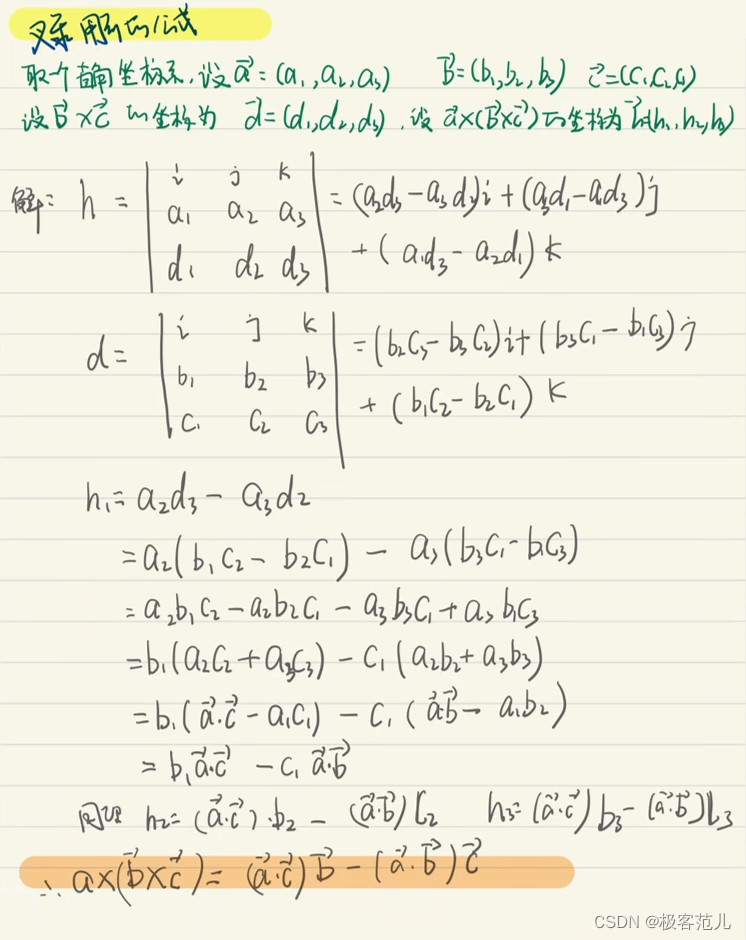 叉乘用到的公式
取个直角坐标系,设a⃗=(a₁,a₂,a₃) b⃗=(b₁,b₂,b₃) c⃗=(c₁,c₂,c₃)
设b⃗×c⃗的坐标为 d⃗=(d₁,d₂,d₃),设a⃗×(b⃗×c⃗)的坐标为h⃗(h₁,h₂,h₃)
解: h = | i j k | = (a₂d₃-a₃d₂)i+(a₃d₁-a₁d₃)j
| a₁ a₂ a₃ |
| d₁ d₂ d₃ | +(a₁d₃-a₂d₁)k
d= | i j k | =(b₂c₃-b₃c₂)i+(b₃c₁-b₁c₃)j
| b₁ b₂ b₃ | +(b₁c₂-b₂c₁)k
| c₁ c₂ c₃ |
h₁=a₂d₃-a₃d₂
=a₂(b₁c₂-b₂c₁)-a₃(b₃c₁-b₁c₃)
=a₂b₁c₂-a₂b₂c₁-a₃b₃c₁+a₃b₁c₃
=b₁(a₂c₂+a₃c₃)-c₁(a₂b₂+a₃b₃)
=b₁(a⃗·c⃗-a₁c₁)-c₁(a⃗·b⃗-a₁b₂)
=b₁a⃗·c⃗-c₁a⃗·b⃗
同理 h₂=(a⃗·c⃗)·b₂-(a⃗·b⃗)c₂ h₃=(a⃗·c⃗)b₃-(a⃗·b⃗)c₃
∴a×(b⃗×c⃗)=(a⃗·c⃗)b⃗-(a⃗·b⃗)c⃗
CSDN @极客范儿